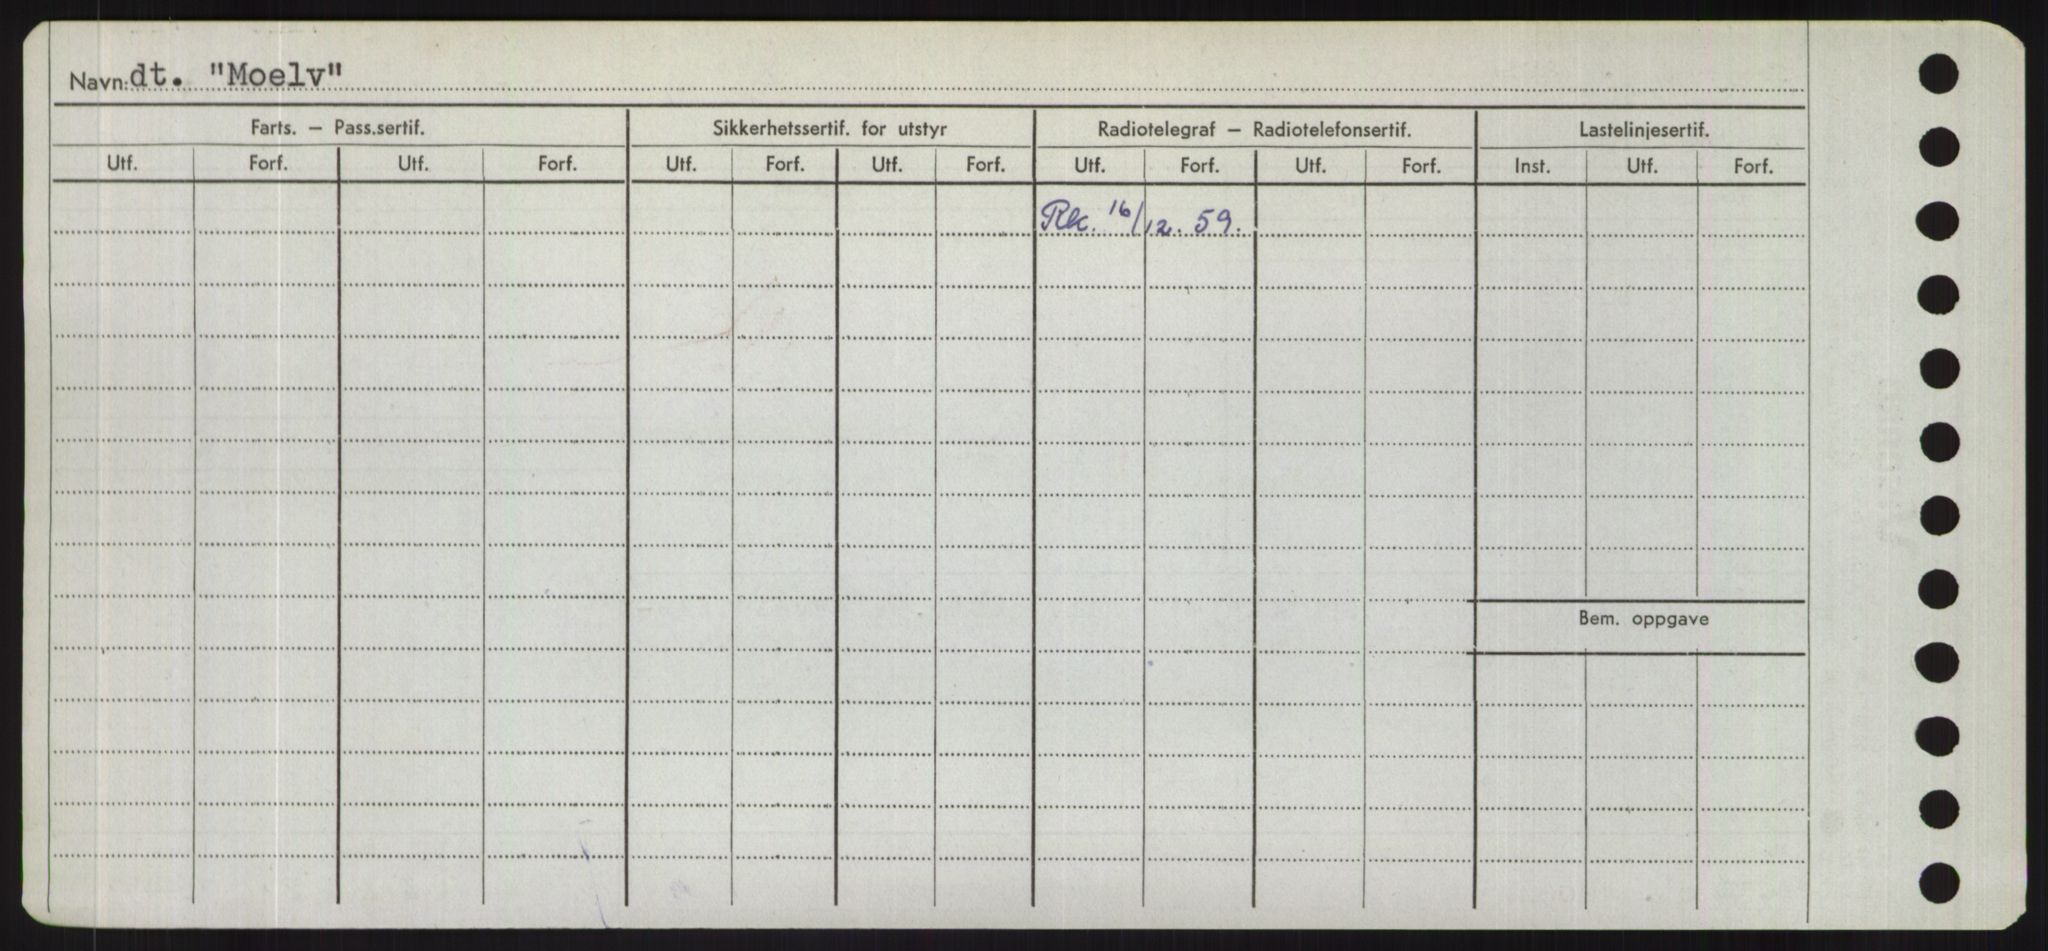 Navn: dt. "Moelv"
Farts. – Pass.sertif. Sikkerhetssertif. for utstyr Radiotelegraf – Radiotelefonsertif. Lastelinjesertif.
Utf. Forf. Utf. Forf. Utf. Forf. Utf. Forf. Utf. Forf. Utf. Forf. Inst. Utf. Forf.
Rk. 16/12. 59.
Bem. oppgave